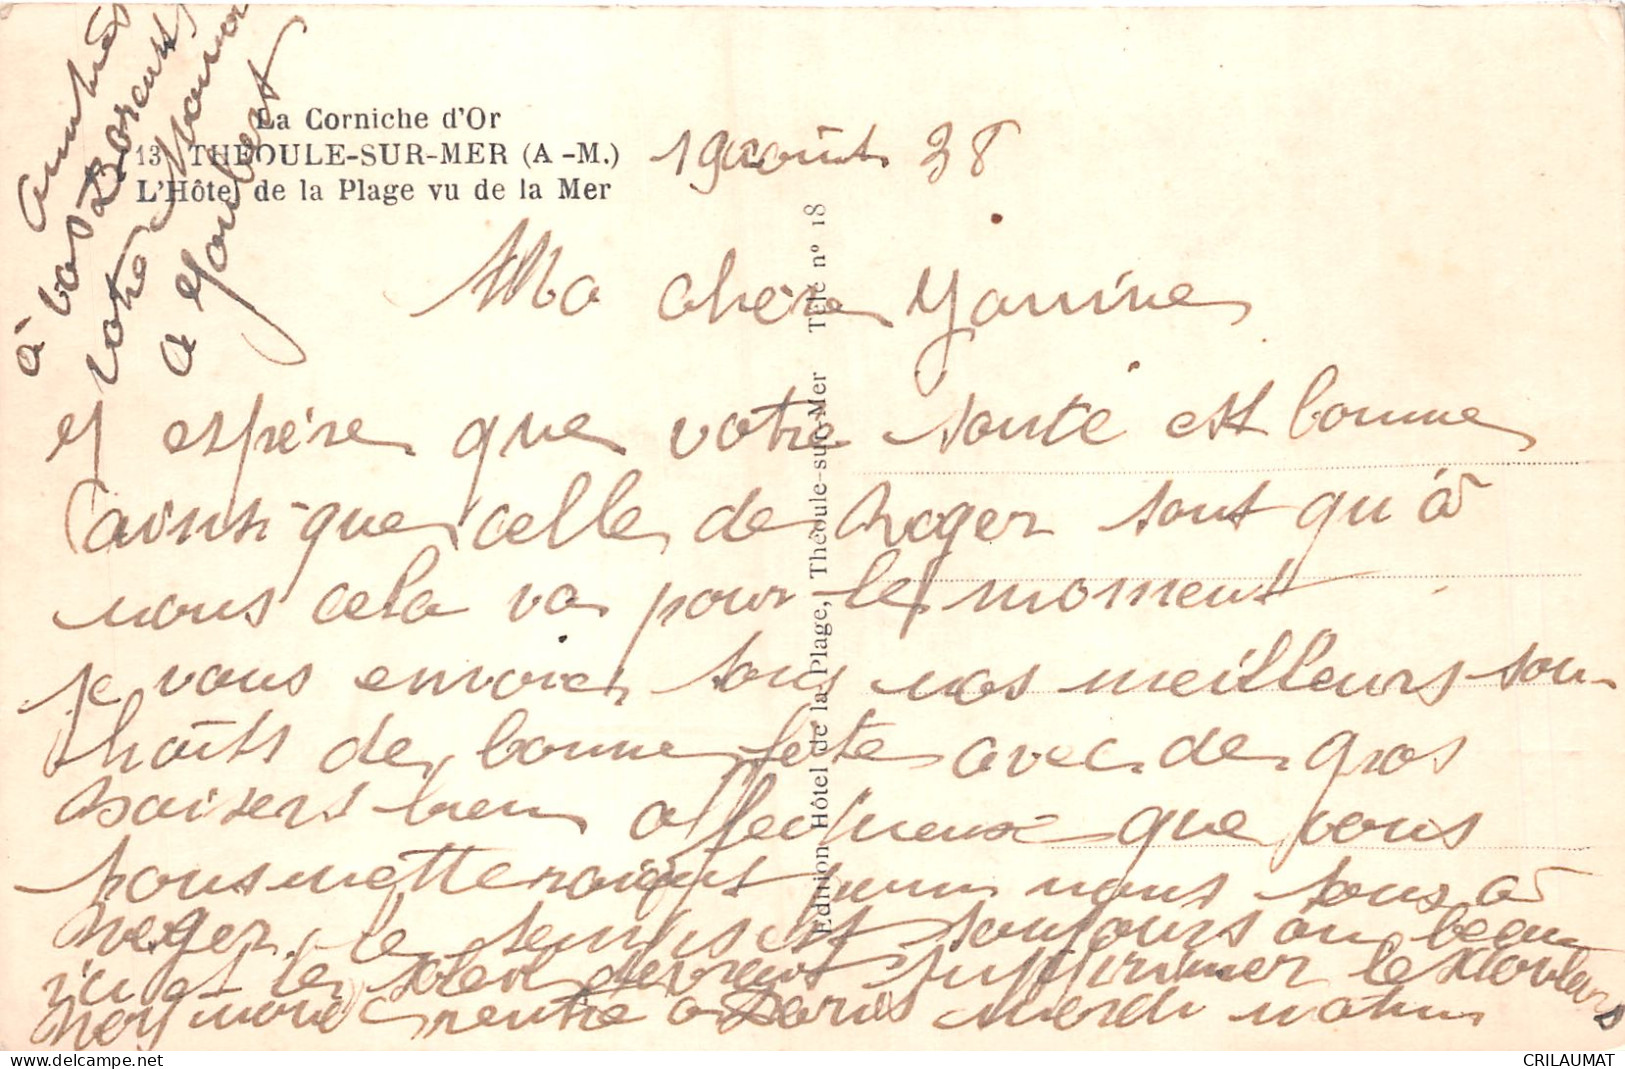 La Corniche d'Or
13 THEOULE-SUR-MER (A-M.)
L'Hôtel de la Plage vu de la Mer
19 août 38
Ma chère Yanine
J espère que votre santé est bonne
ainsi que celle de Roger tout qu'à
nous cela va pour le moment
je vous envoie tous nos meilleurs sou-
haits de bonne fête avec de gros
baisers bien affectueux que vous
nous tous à
Roger. le temps est toujours au beau
ici et le soleil devrait supprimer les douleurs
rentre a Paris Merdi matin
Amitiés
à vos Parents
votre Maman
Edition Hôtel de la Plage, Théoule-sur-Mer Télé nº 18
CRILAUMAT